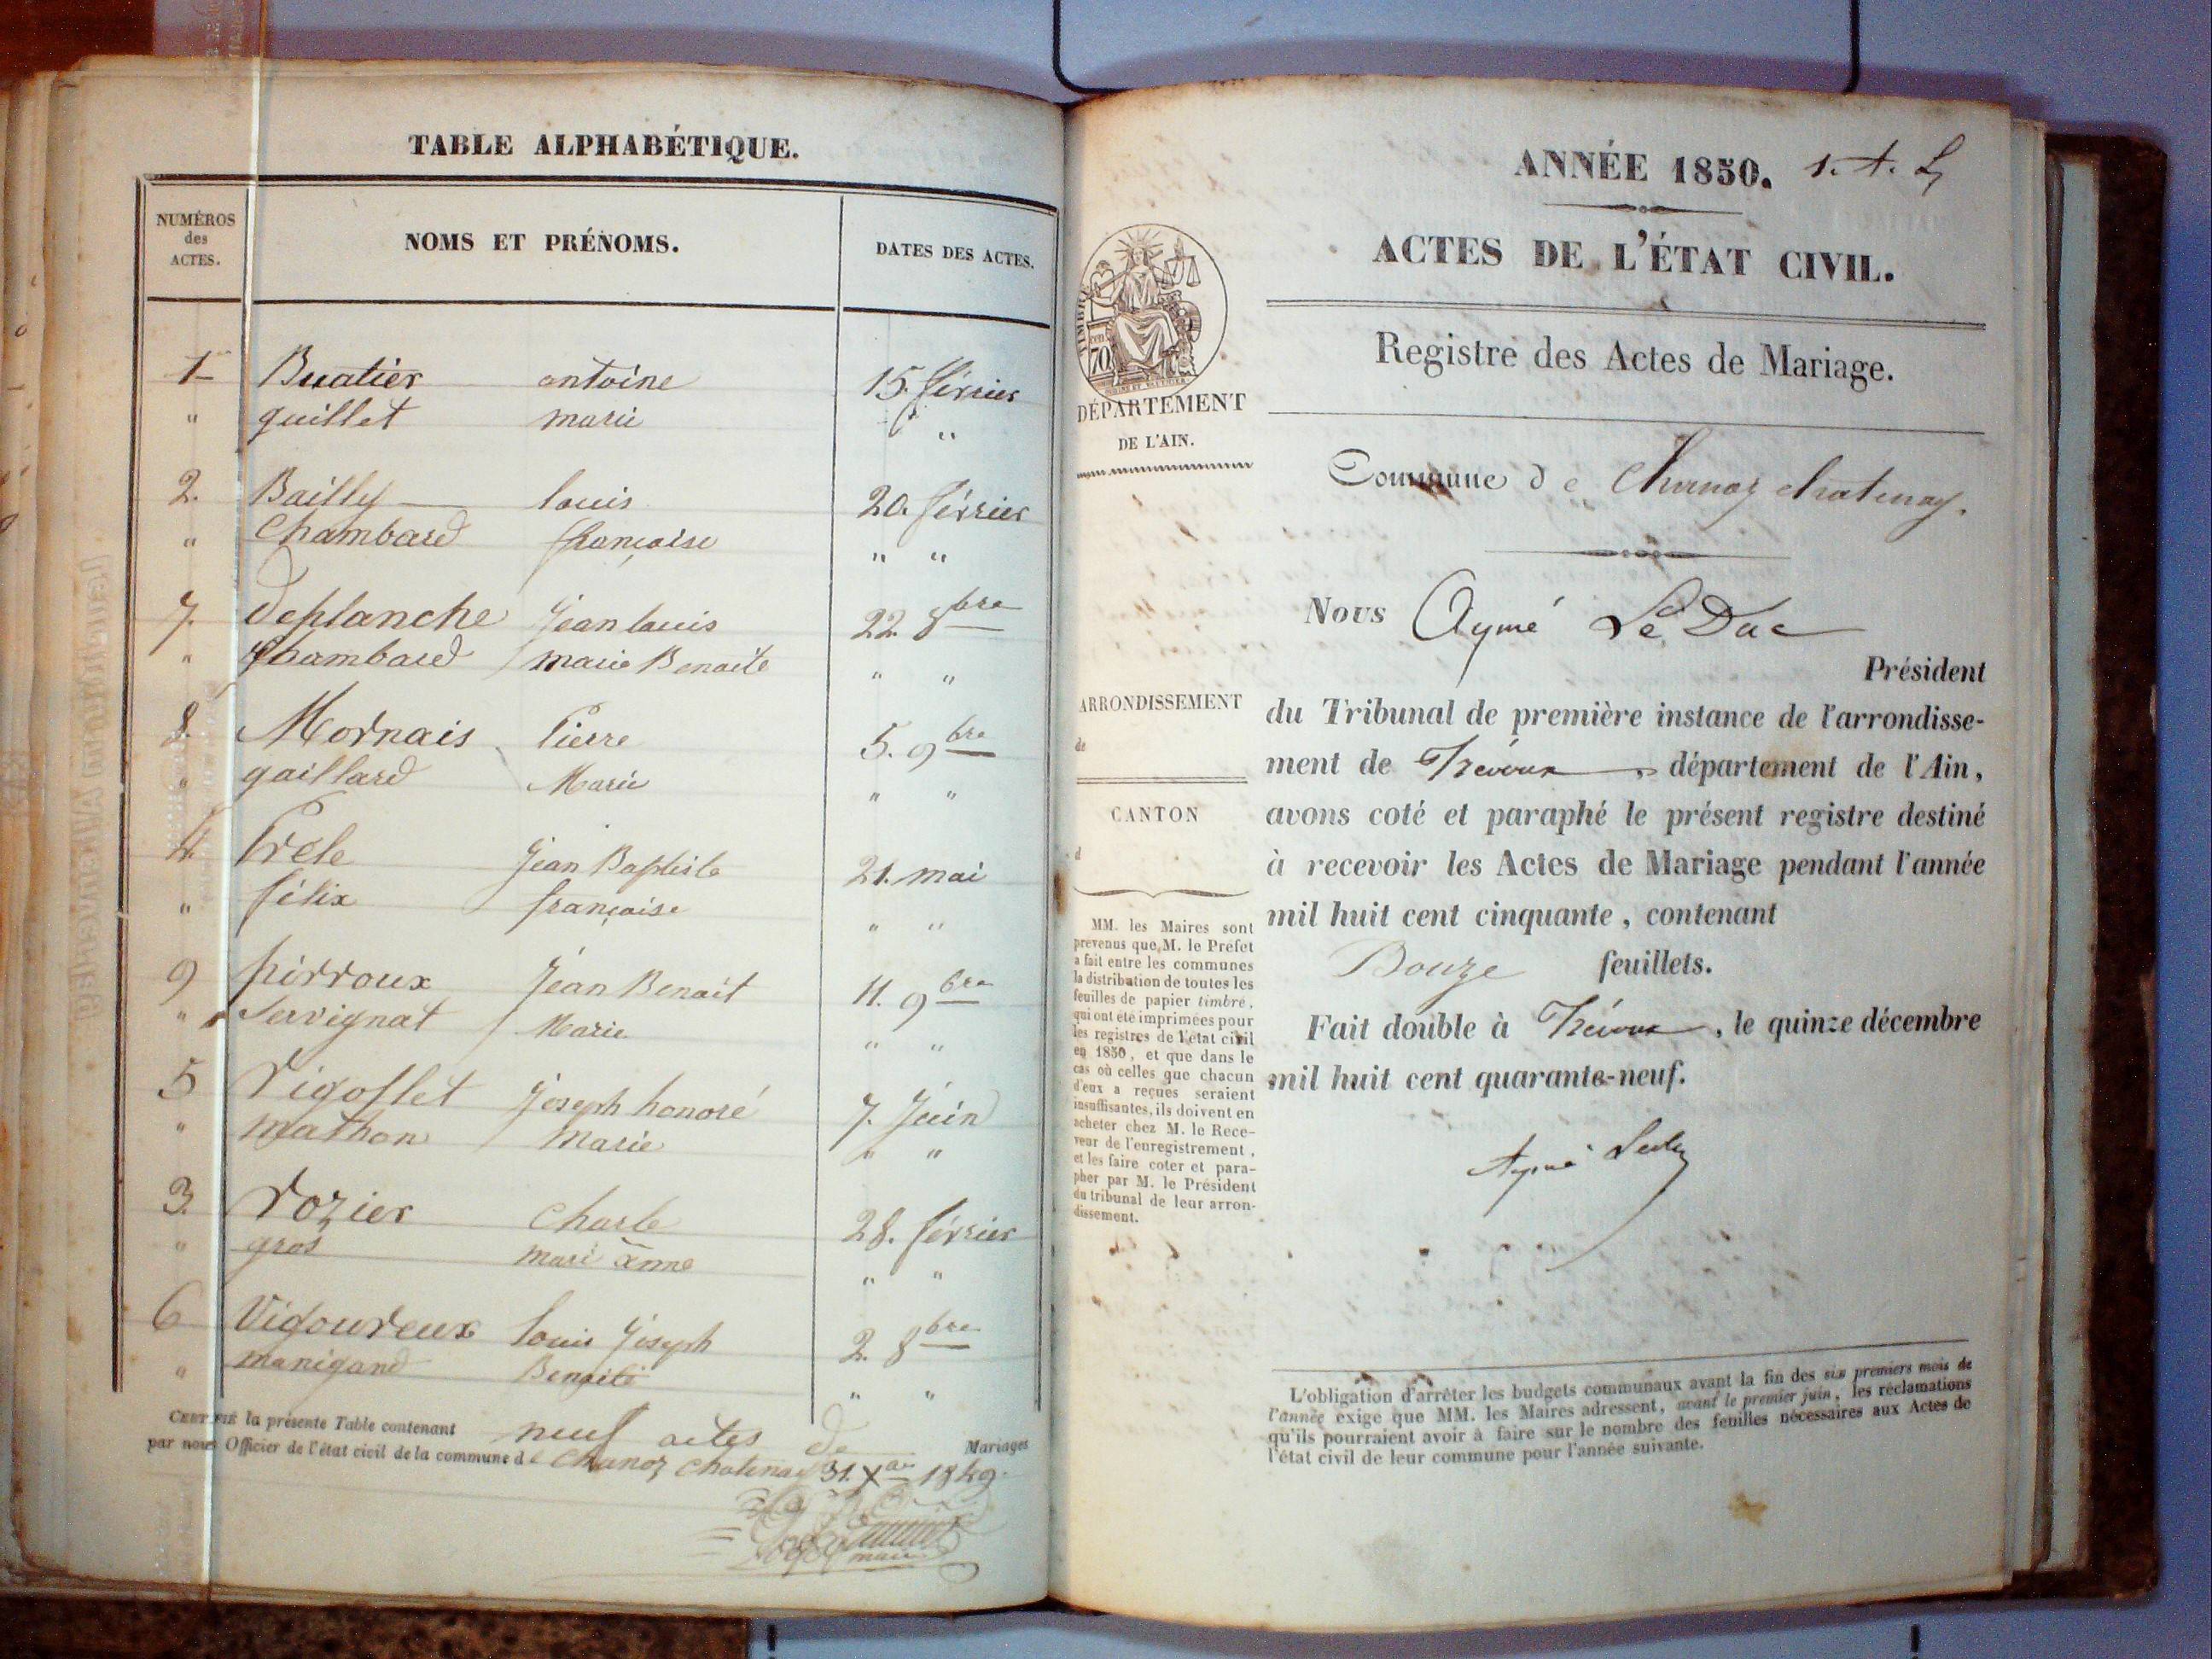 TABLE ALPHABÉTIQUE.
NUMÉROS des ACTES.
NOMS ET PRÉNOMS.
DATES DES ACTES.
1 Buatier antoine 15. février
" guillet marie " "
2. Bailly louis 20. février
" Chambard françoise " "
7. Deplanche jean louis 22. 8bre
" Chambard marie Benoite " "
8. Mornais Pierre 5. 9bre
" gaillard Marie " "
4. Prele jean Baptiste 21. mai
" félix françoise " "
9 pirroux jean Benoit 11. 9bre
" Servignat Marie " "
5 rigollet joseph honoré 7. juin
" mathon marie " "
3. rozier charle 28. février
" gros mari anne " "
6 Vigoureux louis joseph 2. 8bre
" manigand Benoite " "
CERTIFIÉ la présente Table contenant neuf actes de Mariages
par nous Officier de l'état civil de la commune de Chanoz Chatenay 31. Xbre 1849.
maire
ANNÉE 1850.
ACTES DE L'ÉTAT CIVIL.
Registre des Actes de Mariage.
TIMBRE
70
DÉPARTEMENT
DE L'AIN.
Commune de Chanoz chatenay.
Nous Aymé Le Duc
Président
ARRONDISSEMENT
de
CANTON
d
du Tribunal de première instance de l'arrondisse-
ment de Trévoux, département de l'Ain,
avons coté et paraphé le présent registre destiné
à recevoir les Actes de Mariage pendant l'année
mil huit cent cinquante, contenant
Douze feuillets.
Fait double à Trévoux, le quinze décembre
mil huit cent quarante-neuf.
MM. les Maires sont
prévenus que M. le Préfet
a fait entre les communes
la distribution de toutes les
feuilles de papier timbré,
qui ont été imprimées pour
les registres de l'état civil
en 1850, et que dans le
cas où celles que chacun
d'eux a reçues seraient
insuffisantes, ils doivent en
acheter chez M. le Rece-
veur de l'enregistrement,
et les faire coter et para-
pher par M. le Président
du tribunal de leur arron-
dissement.
L'obligation d'arrêter les budgets communaux avant la fin des six premiers mois de
l'année exige que MM. les Maires adressent, avant le premier juin, les réclamations
qu'ils pourraient avoir à faire sur le nombre des feuilles nécessaires aux Actes de
l'état civil de leur commune pour l'année suivante.